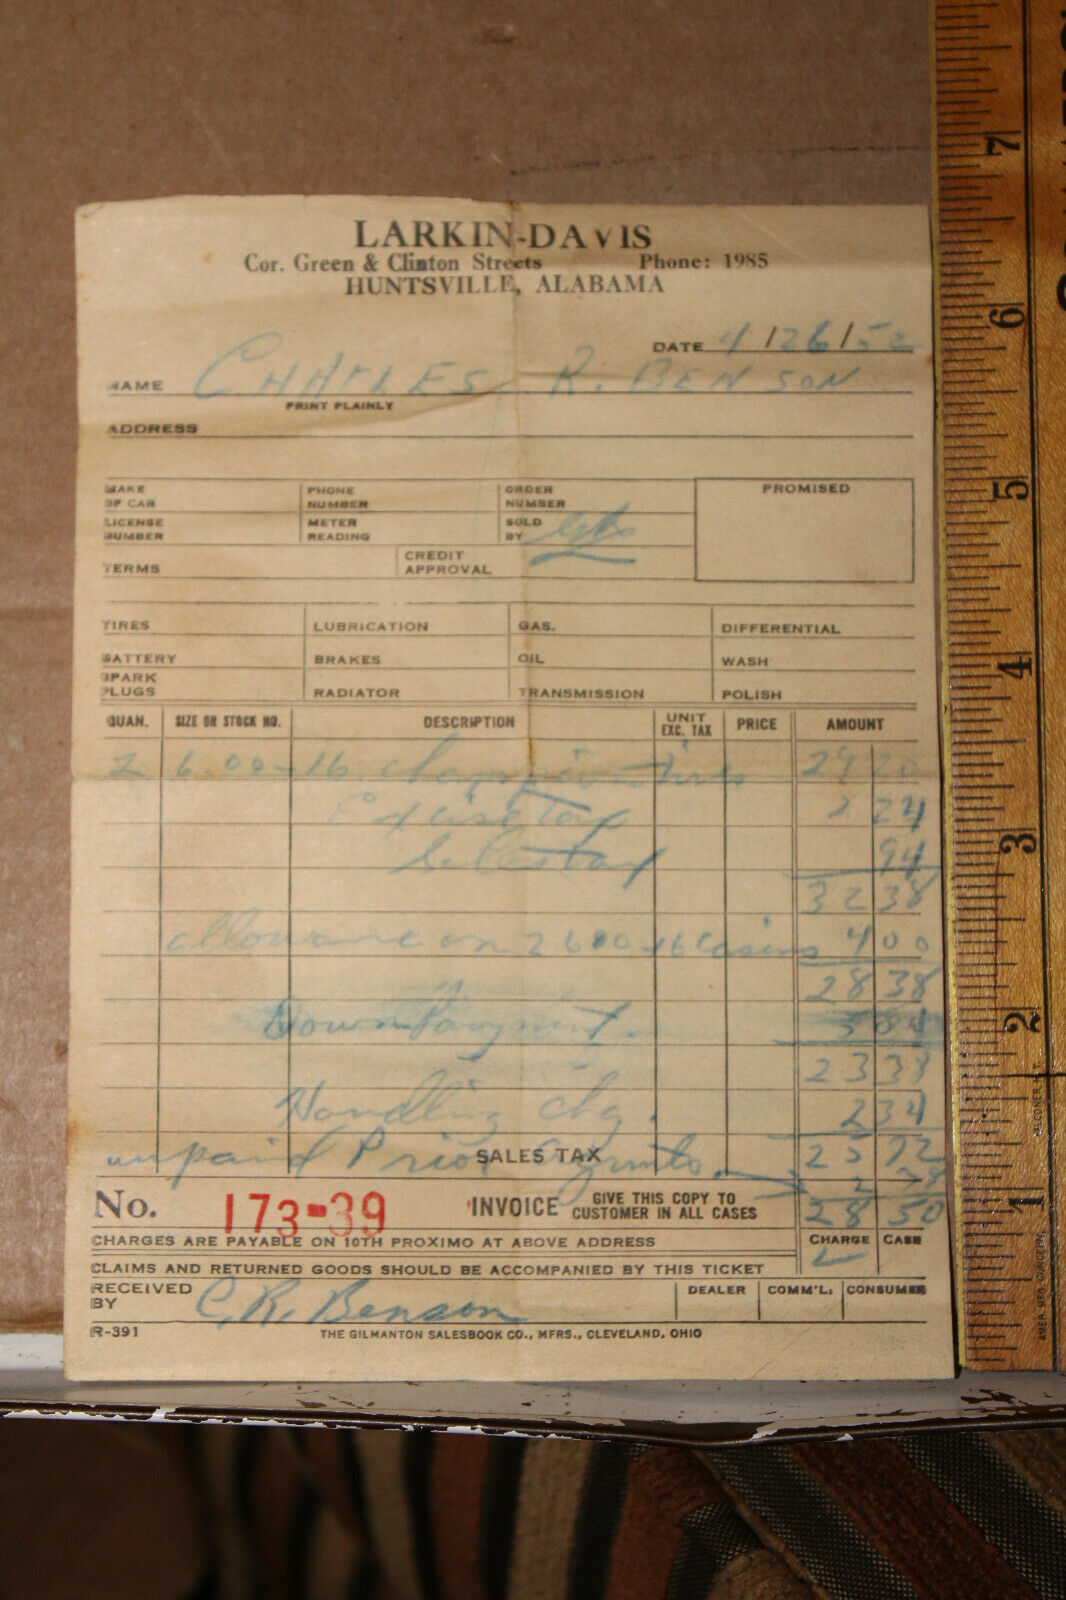 LARKIN-DAVIS
Cor. Green & Clinton Streets Phone: 1985
HUNTSVILLE, ALABAMA
DATE 4/26/52
NAME CHARLES R. BENSON
PRINT PLAINLY
ADDRESS
MAKE OF CAR PHONE NUMBER ORDER NUMBER PROMISED
LICENSE NUMBER METER READING SOLD BY
TERMS CREDIT APPROVAL
TIRES LUBRICATION GAS. DIFFERENTIAL
BATTERY BRAKES OIL WASH
SPARK PLUGS RADIATOR TRANSMISSION POLISH
QUAN. SIZE OR STOCK NO. DESCRIPTION UNIT EXC. TAX PRICE AMOUNT
2 6.00-16 Champion tires 29 20
Excise tax 2 24
Sales tax 94
32 38
allowance on 2 600-16 Casings 4 00
28 38
Down Payment. 5 04
23 34
Handling chg. 2 34
unpaid Prior SALES TAX 25 72
2 78
28 50
No. 173-39 INVOICE GIVE THIS COPY TO CUSTOMER IN ALL CASES
CHARGES ARE PAYABLE ON 10TH PROXIMO AT ABOVE ADDRESS CHARGE CASH
CLAIMS AND RETURNED GOODS SHOULD BE ACCOMPANIED BY THIS TICKET
RECEIVED BY C. R. Benson DEALER COMM'L. CONSUMER
R-391 THE GILMANTON SALESBOOK CO., MFRS., CLEVELAND, OHIO
7
6
5
4
3
2
1